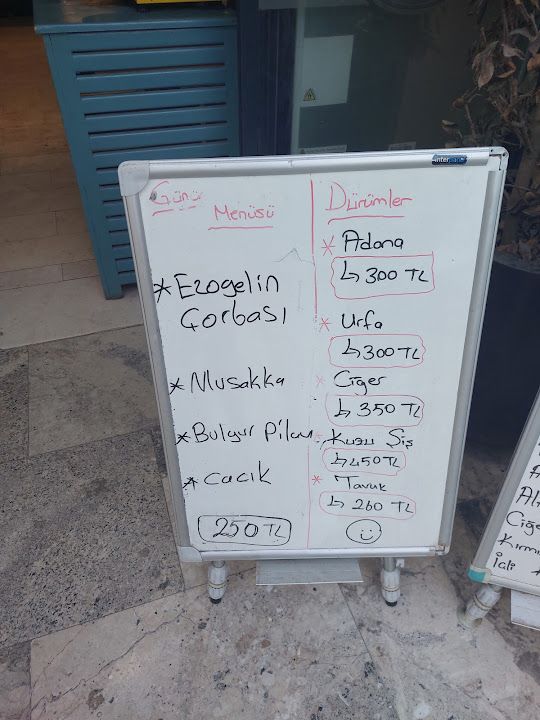 Menüsü
* Ezogelin
Çorbası
* Musakka
* Bulgur Pilavı
* Cacık
250 TL
Dürümler
* Adana
↳ 300 TL
* Urfa
↳ 300 TL
* Ciğer
↳ 350 TL
* Kuzu Şiş
↳ 450 TL
* Tavuk
↳ 260 TL